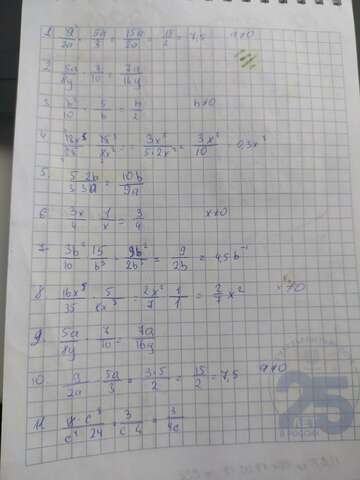 1. 9/2a · 5a/3 = 15a/2a = 15/2 = 7,5 a≠0
2. 5a/8y · 7/10 = 7a/16y
3. b²/10 · 5/b = b/2 b≠0
4. = 3x²/5·2x = 3x²/10 = 0,3x²
5. 5/3 · 2b/3a = 10b/9a
6. 3x/4 · 1/x = 3/4 x≠0
7. 3b²/10 · 15/b³ = 9b²/2b³ = 9/2b = 4,5b⁻¹
8. 16x⁵/35 · 5/8x³ = 2x²/7 · 1/1 = 2/7 x² x≠0
9. 5a/8y · 7/10 = 7a/16y
10. 9/2a · 5a/3 = 3·5/2 = 15/2 = 7,5 a≠0
11. c³/24 = 3/4c
25
ЛЕТ